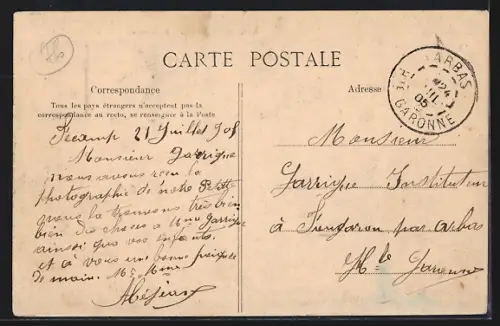 CARTE POSTALE
Correspondance
Tous les pays étrangers n'acceptent pas la
correspondance au recto, se renseigner à la Poste
Adresse
ARBAS
24
05
HTE GARONNE
Fécamp 21 Juillet 905
Monsieur Garrigue
nous avons reçu la
photographie de notre Petite
nous la trouvons très bien
bien des choses a Mme Garrigue
ainsi que vos enfants
et à vous une bonne poignée
de main. Mr Mme
Monsieur
Garrigue Instituteur
à Fougaron par Arbas
Hte Garonne